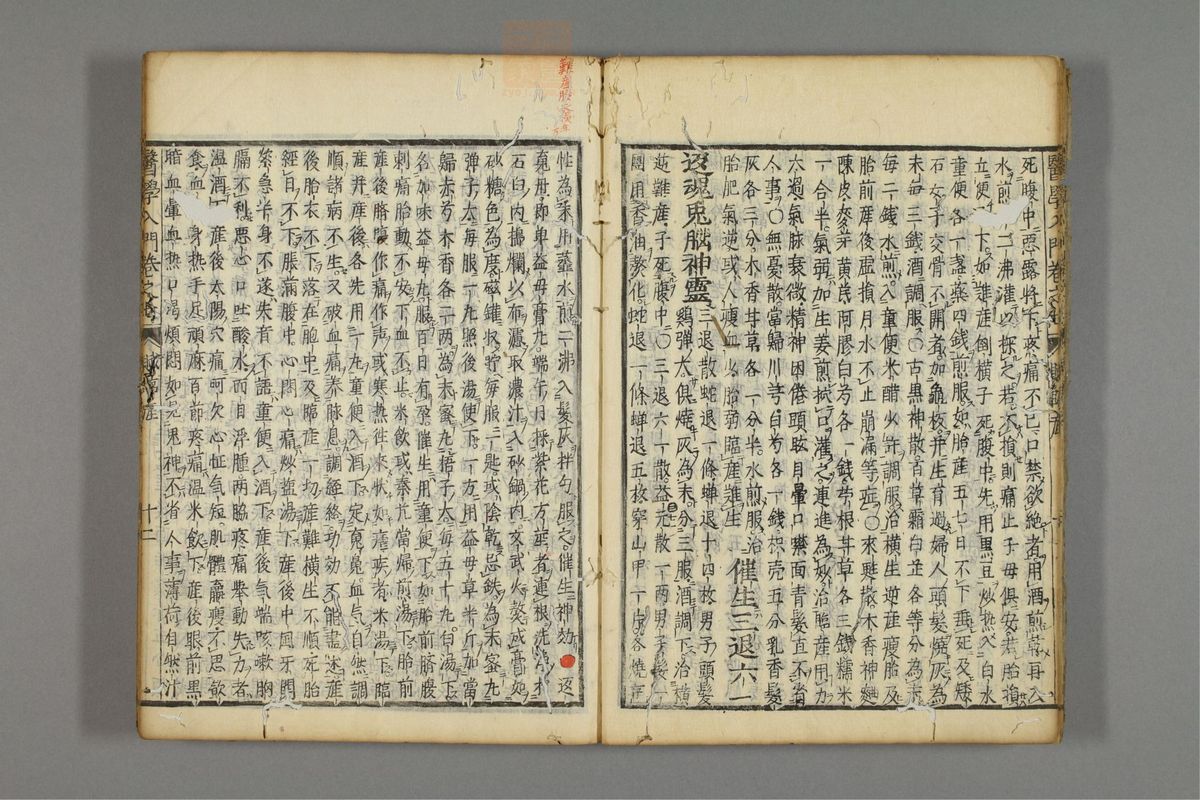 死腹中惡露將下疼痛不已口禁欲絕者用酒煎乾再入
水煎一二沸灌以探之若不損則痛止子母俱安若胎損
立便下如難産倒橫子死腹中先用黑豆炒熱入白水
童便各一盞藥四錢煎服如胎産五七日不下垂死及矮
石女子交骨不開者加龜板并生育過婦人頭髮燒灰為
末每三錢酒調服○古黑神散百草霜白芷各等分為末
每二錢水煎入童便米醋少許調服治橫生逆産瘦胎及
胎前産後虛損月水不止崩漏等症○來甦散木香神麴
陳皮麥芽黃芪阿膠白芍各一錢苧根甘草各三錢糯米
一合半氣弱加生姜煎拭口灌之連進為妙治臨産用力
太過氣脉衰微精神困倦頭眩目暈口噤面青髮直不省
人事○無憂散當歸川芎白芍各一錢枳壳五分乳香髮
灰各三分木香甘草各一分半水煎服治
胎肥氣逆或人瘦血少胎弱臨産難生 催生三退六一
返魂兎腦神靈 三退散蛇退一條蟬退十四枚男子頭髮
鷄彈大俱燒灰為末分三服酒調下治橫
逆難産子死腹中○三退六一散益元散一兩男子髮一
團用香油熬化蛇退一條蟬退五枚穿山甲一片各燒
性為末用虀水煎二沸入髮灰拌勻服之催生神効●返
䰟丹即卑益母膏丸端午日採紫花方莖者連根洗
石臼內搗爛以布濾取濃汁入砂鍋內文武火熬成膏如
砂糖色為度磁罐收貯每服一匙或陰乾忌鉄為末蜜丸
彈子大每服一丸照後湯使下一方用益母草半斤加當
歸赤芍木香各二兩為末蜜丸梧子大每五十丸白湯下
名加味益母丸服百日有孕催生用童便下如胎前臍腹
刺痛胎動不安下血不止米飲或秦艽當歸煎湯下胎前
産後臍腹作痛作聲或寒熱往來狀如瘧疾者米湯下臨
産并産後各先用一丸童便入酒下定䰟血氣自然調
順諸病不生又破血痛養脉息調經絡功効不能盡述産
後胎衣不下落在胞中及臨産一切産難橫生不順死胎
經日不下脹滿腹中心悶心痛炒塩湯下産後中風牙關
緊急半身不遂失音不語童便入酒下産後氣喘咳嗽胸
膈不利惡心口吐酸水面目浮腫兩脇疼痛舉動失力者
溫酒下産後太陽穴痛呵欠心怔氣短肌體羸瘦不思飲
食血身熱手足頑麻百節疼痛溫米飲下産後眼前黑
暗血暈血熱口渴煩悶如見鬼神不省人事薄荷自然汁
醫學入門卷之
十二